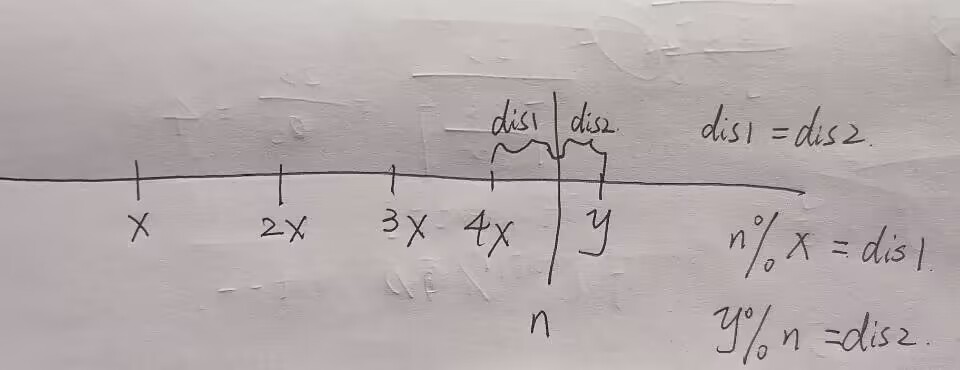 dis1 dis2. dis1 = dis2.
x 2x 3x 4x y
n % x = dis1.
n
y % n = dis2.